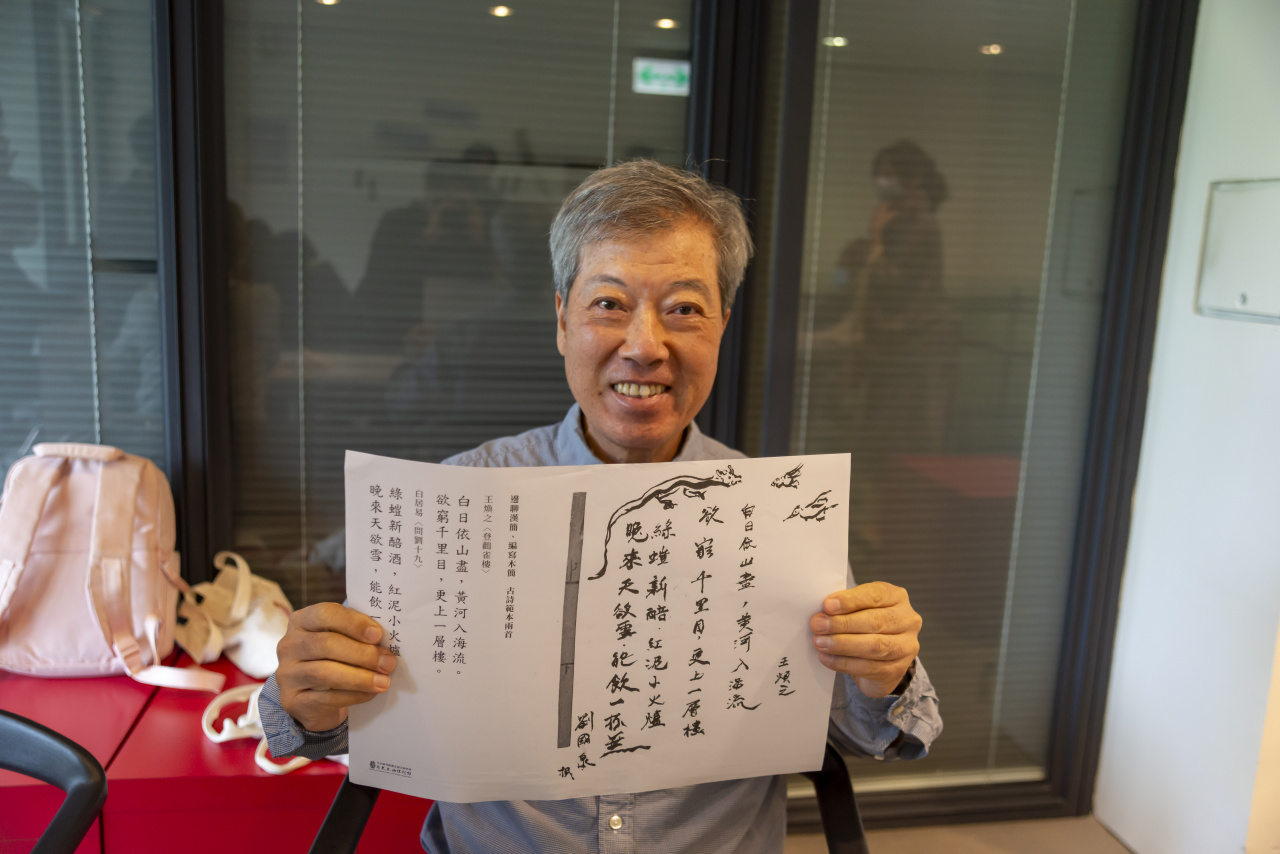 王煥之
白日依山盡,黃河入海流
欲窮千里目,更上一層樓
綠螘新醅.紅泥小火爐
晚來天欲雪.能飲一杯無
劉國泉
邊聊漢簡、編寫木簡　古詩範本兩首
王煥之〈登鸛雀樓〉
白日依山盡,黃河入海流。
欲窮千里目,更上一層樓。
白居易〈問劉十九〉
綠螘新醅酒,紅泥小火爐
晚來天欲雪,能飲一